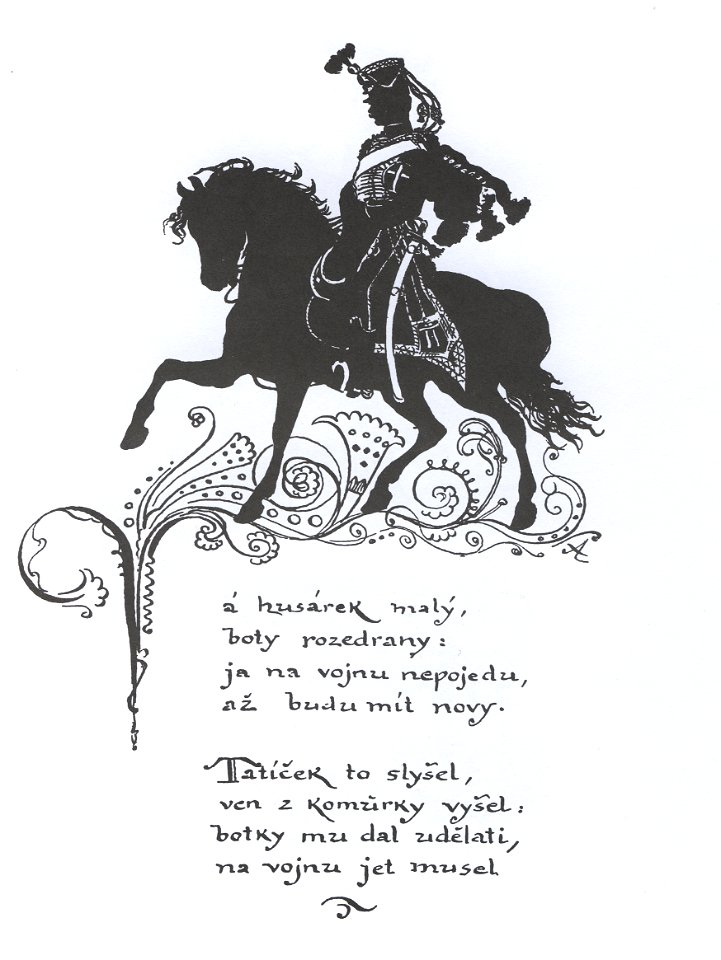 Já husárek malý,
boty rozedrany:
ja na vojnu nepojedu,
až budu mít novy.
Tatíček to slyšel,
ven z komůrky vyšel:
botky mu dal udělati,
na vojnu jet musel